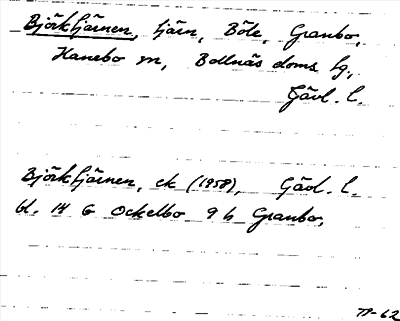 Björktjärnen, tjärn, Böle, Granbo,
Hanebo sn, Bollnäs doms hg.,
Gävl. l.
Björktjärnen, ek (1958), Gävl. l.
bl. 14 G Ockelbo 9 h Granbo,
TP-62